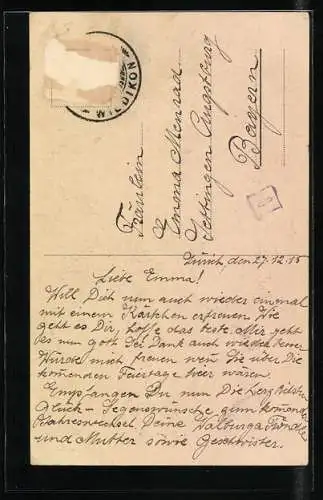 WILDIKON
Fräulein
Emma Menrad
Göttingen Augsburg
Bayern
Zürich den 27.12.15
Liebe Emma!
Will Dich nun auch wieder einmal
mit einem Kärtchen erfreuen Wie
geht es Dir, hoffe das beste. Mir geht
es nun gott sei Dank auch wieder besser
Würde mich freuen wen Sie über die
komenden Feiertage hier wären
Empfangen Du nun Die herzlichsten
Glück- Segenswünsche zum komenden
Jahreswechsel Deine Walburga
und Mutter sowie Geschwister.